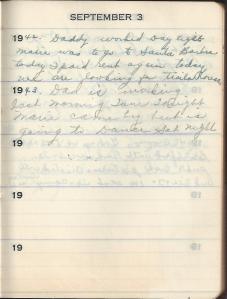 SEPTEMBER 3
1942. Daddy worked Day night
Marie was to go to Santa Barbra
today I paid rent again today
we are looking for trailer house
1943. Dad is working
last morning Tour Tonight
Marie came by but is
going to Dance Sat night
19
19
19